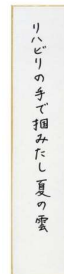 リハビリの手で掴みたし夏の雲